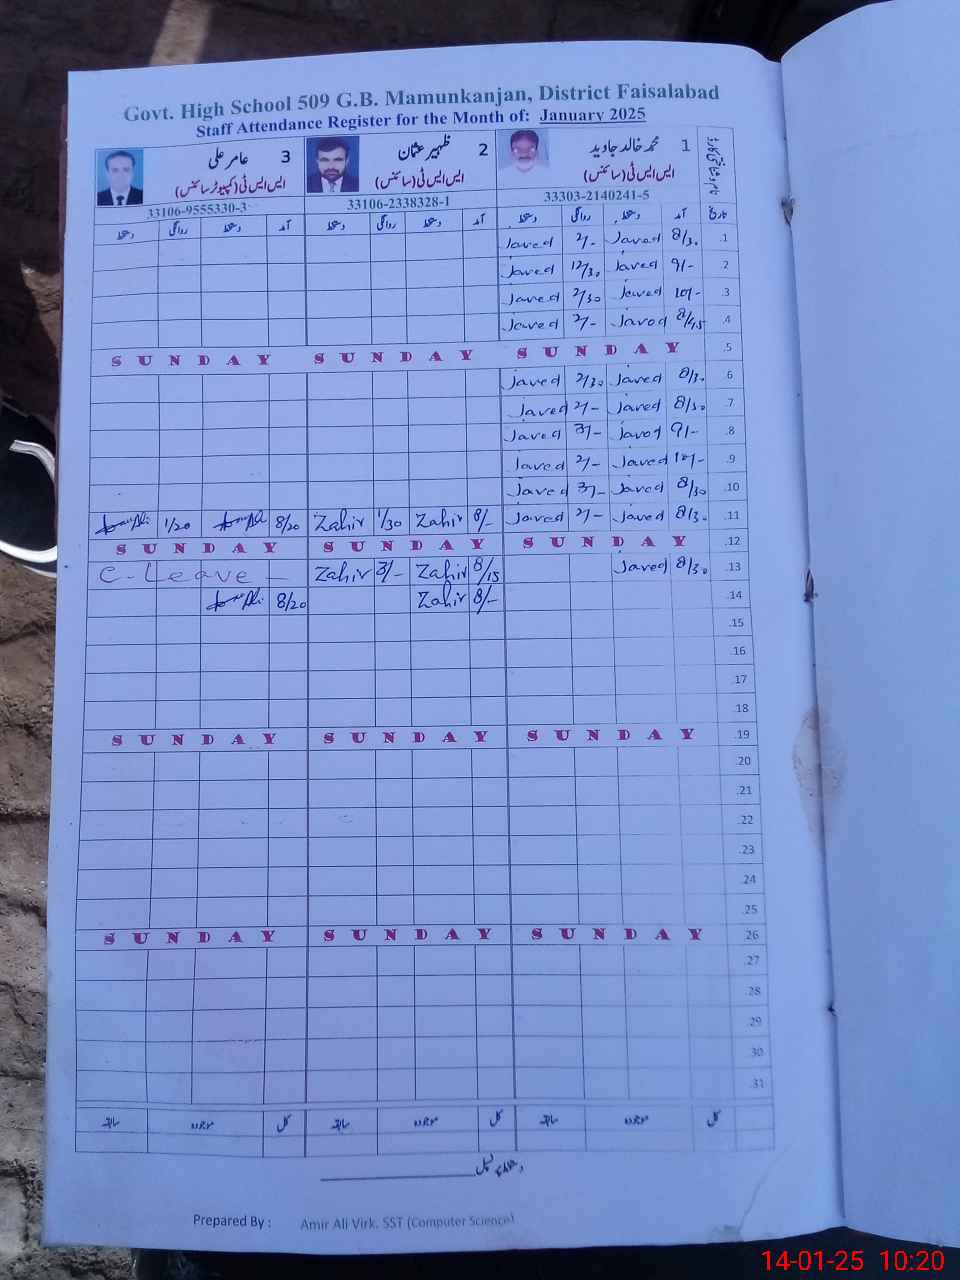 Govt. High School 509 G.B. Mamunkanjan, District Faisalabad
Staff Attendance Register for the Month of: January 2025
عامر علی 3 ظہیر عثمان 2 محمد خالد جاوید 1
ایس ایس ٹی (کمپیوٹر سائنس) ایس ایس ٹی (سائنس) ایس ایس ٹی (سائنس)
33106-9555330-3 33106-2338328-1 33303-2140241-5
دستخط روانگی دستخط آمد دستخط روانگی دستخط آمد دستخط روانگی دستخط آمد تاریخ
Javed 2/- Javed 8/30 .1
Javed 12/30 Javed 9/- 2
Javed 2/30 Javed 10/- .3
Javed 2/- Javed 8/45 .4
SUNDAY SUNDAY SUNDAY .5
Javed 2/30 Javed 8/30 .6
Javed 2/- Javed 8/30 .7
Javed 3/- Javed 9/- .8
Javed 2/- Javed 10/- .9
Javed 3/- Javed 8/30 .10
1/20 8/20 Zahir 1/30 Zahir 8/- Javed 2/- Javed 8/30 .11
SUNDAY SUNDAY SUNDAY .12
C-Leave - Zahir 3/- Zahir 8/15 Javed 8/30 .13
8/20 Zahir 8/- .14
.15
.16
.17
.18
SUNDAY SUNDAY SUNDAY .19
.20
.21
.22
.23
.24
.25
SUNDAY SUNDAY SUNDAY .26
.27
.28
.29
.30
.31
سابقہ موجودہ کل سابقہ موجودہ کل سابقہ موجودہ کل
Prepared By : Amir Ali Virk. SST (Computer Science)
14-01-25 10:20